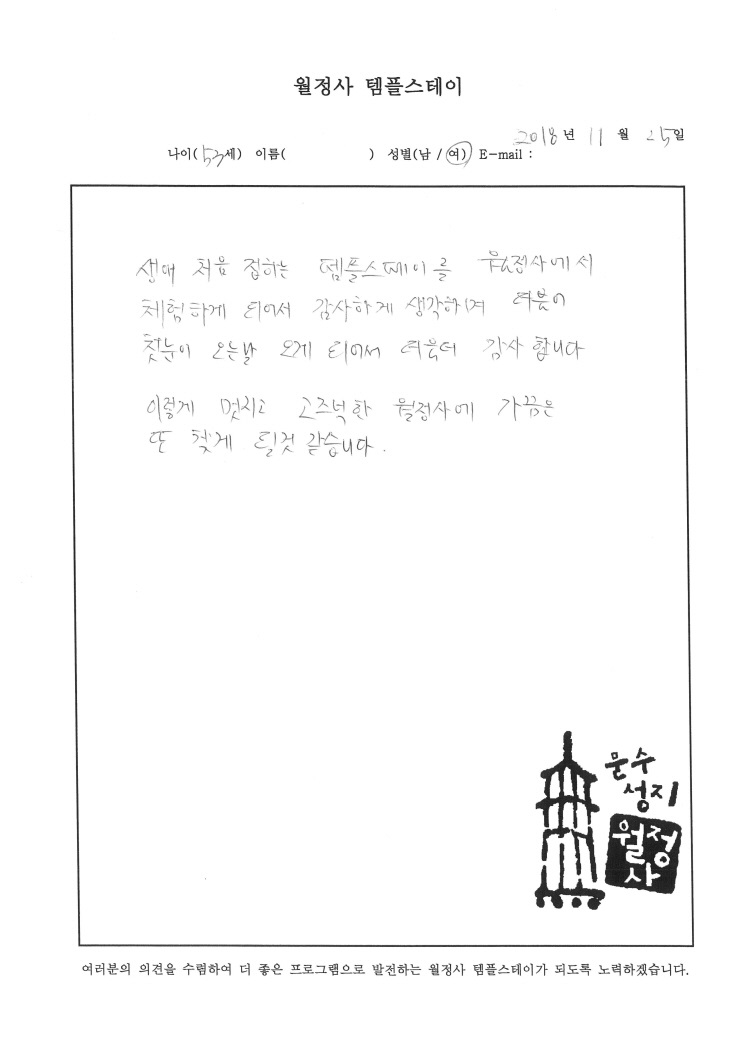 월정사 템플스테이
2018년 11월 25일
나이(53세) 이름( ) 성별(남 / 여) E-mail :
생애 처음 접하는 템플스테이를 월정사에서
체험하게 되어서 감사하게 생각하며 더불어
첫눈이 오는날 오게 되어서 더욱더 감사 합니다
이렇게 멋지고 고즈넉한 월정사에 가끔은
또 찾게 될것 같습니다.
문수
성지
월정
사
여러분의 의견을 수렴하여 더 좋은 프로그램으로 발전하는 월정사 템플스테이가 되도록 노력하겠습니다.